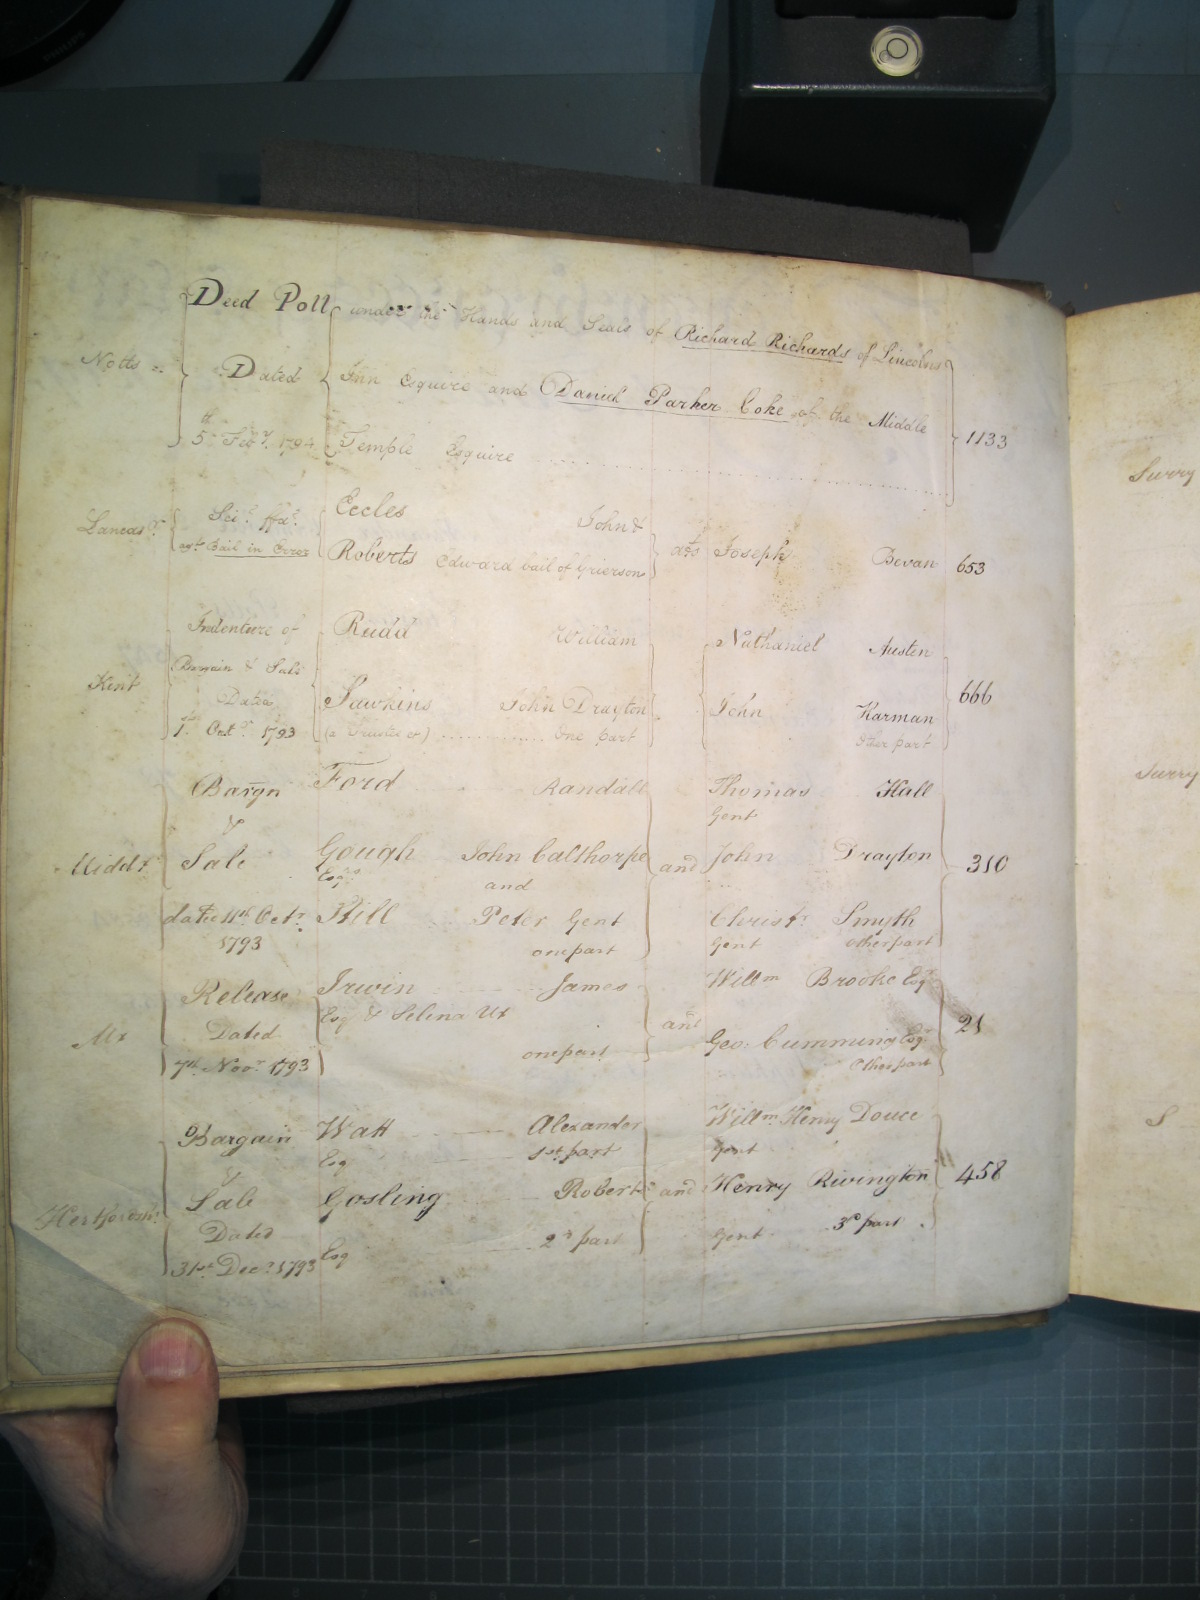 Deed Poll under the Hands and Seals of Richard Richards of Lincolns
Notts Dated Inn Esquire and Daniel Parker Coke of the Middle
5th Feby 1794 Temple Esquire 1133
Eccles John &
Lancasr Sci: ffa:
agt Bail in Error Roberts Edward bail of Grierson ats Joseph Bevan 653
Indenture of Rudd William Nathaniel Austen
Bargain & Sale
Kent Dated Sawkins John Drayton John Karman 666
1st Octr 1793 (a Trustee &c) one part other part
Bargn Ford Randall Thomas Hall
& Gent
Middx Sale Gough John Calthorpe and John Drayton 310
Esqrs and
dated 11th Octr Hill Peter Gent Christr Smyth
1793 one part Gent other part
Release Irwin James Willm Brooke Esqr
Mx Dated Esq & Selina Ux and Geo: Cumming Esqr 21
7th Novr 1793 one part other part
Bargain Watt Alexander Willm Henry Douce
& Esq 1st part Gent
Hertfordsh: Sale Gosling Robert and Henry Rivington 458
Dated 2d part Gent 3d part
31st Decr 1793 Esq
Surry
Surry
S
PHILIPS